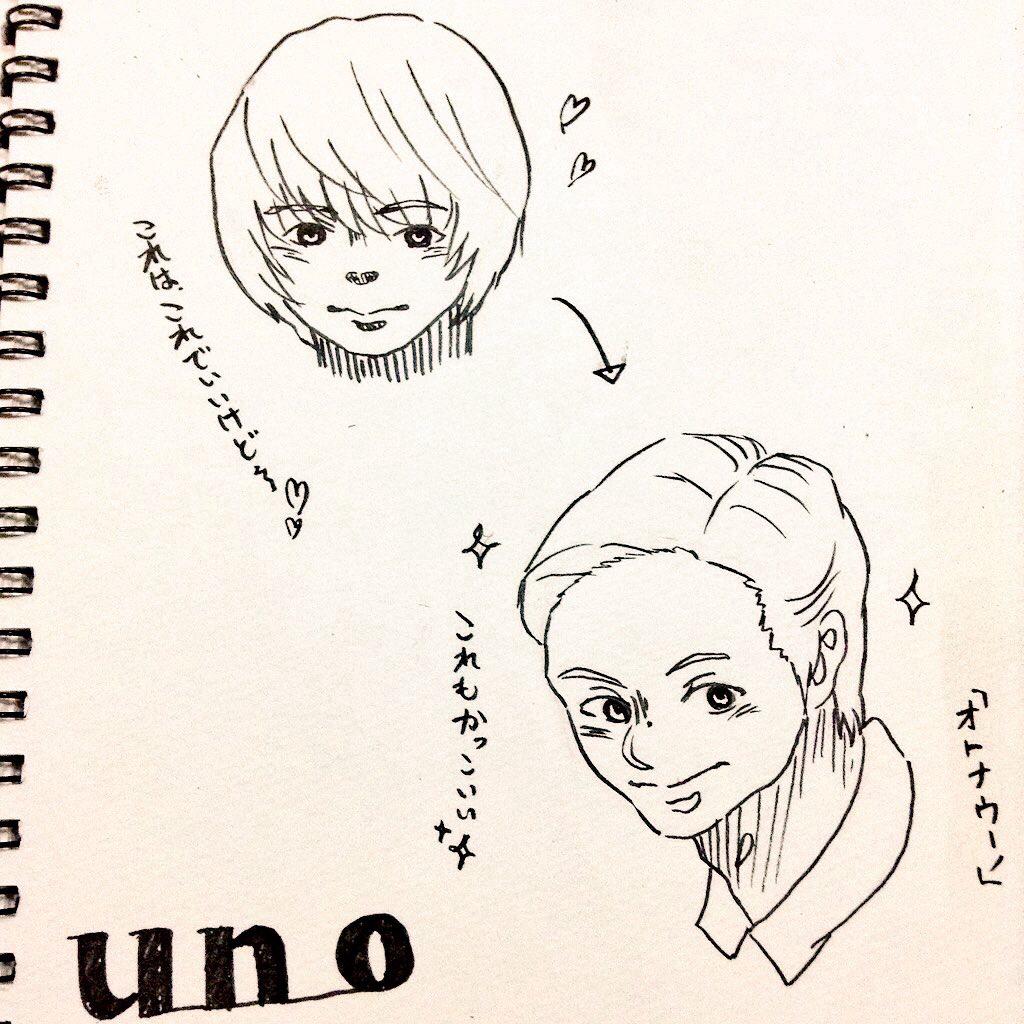 これは、これでいいけど〜
これもかっこいい
「オトナウーノ」
uno